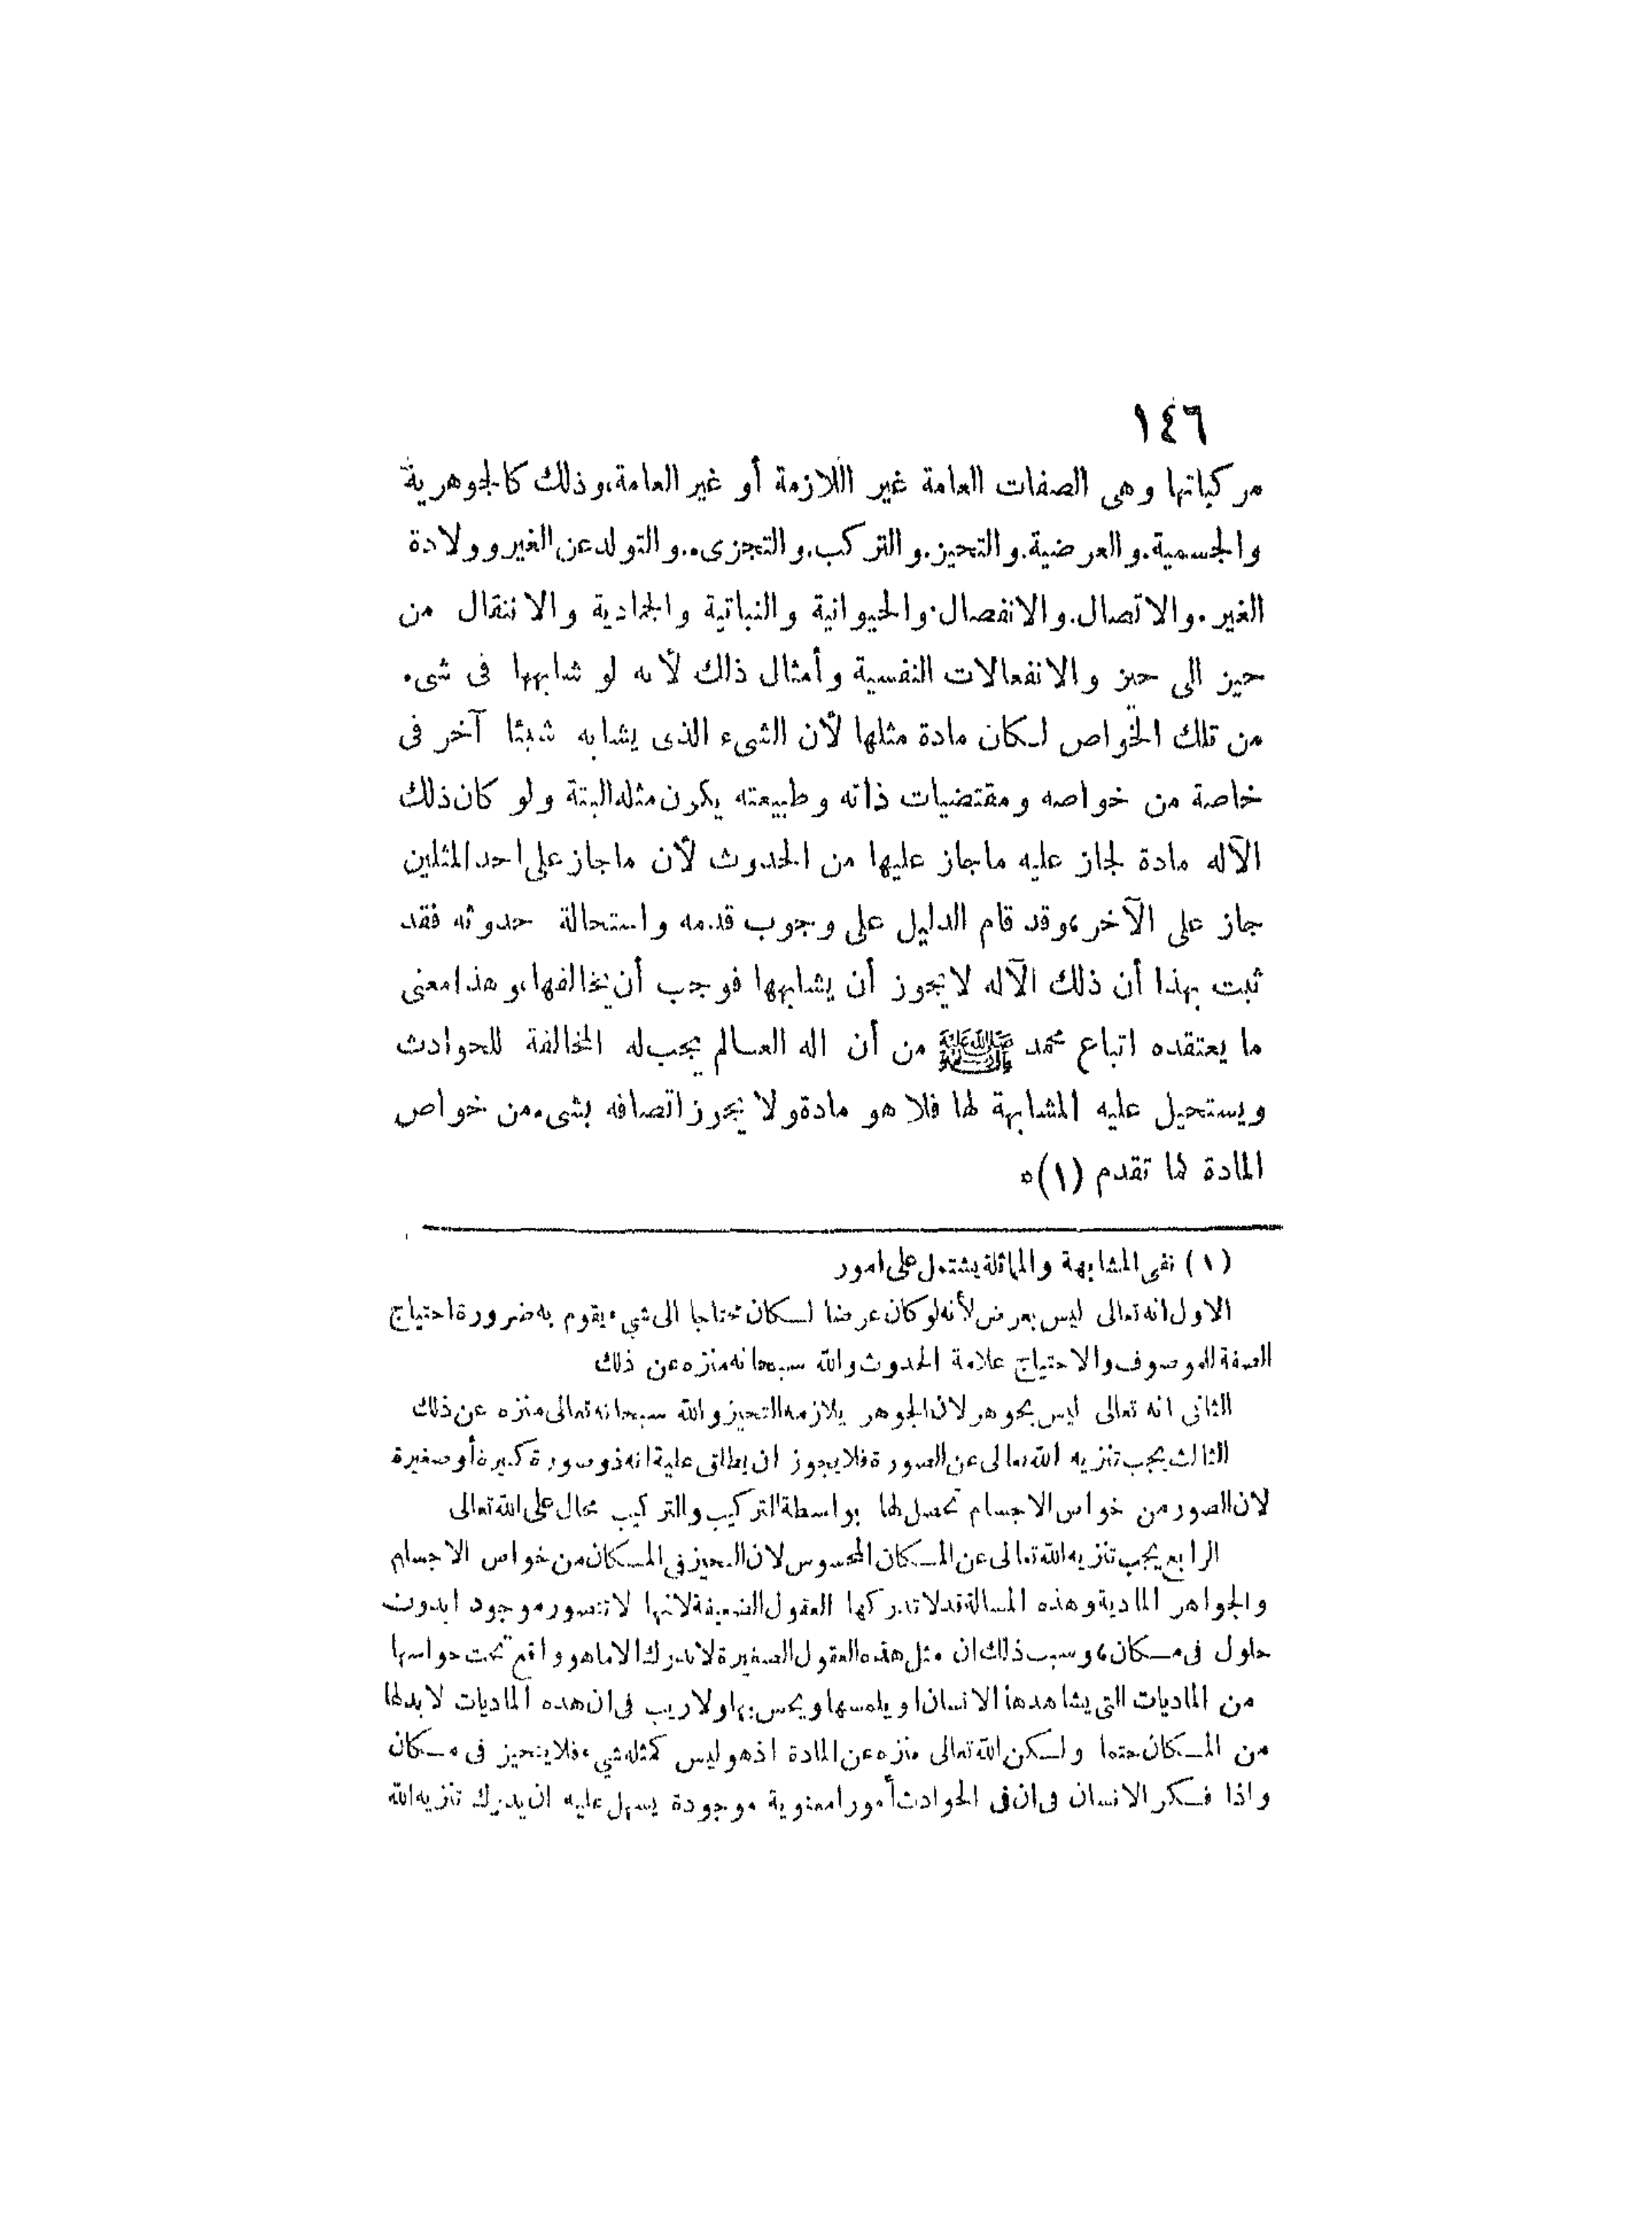 ١٤٦
مركباتها وهى الصفات العامة غير اللازمة أو غير العامة، وذلك كالجوهرية
والجسمية. والعرضية. والتحيز. والتركب. والتجزىء. والتولد عن الغير وولادة
الغير. والاتصال. والانفصال. والحيوانية والنباتية والجمادية والانتقال من
حيز الى حيز والانفعالات النفسية وأمثال ذلك لأنه لو شابهها فى شىء
من تلك الخواص لكان مادة مثلها لأن الشىء الذى يشابه شيئا آخر فى
خاصة من خواصه ومقتضيات ذاته وطبيعته يكون مثله البتة ولو كان ذلك
الآله مادة لجاز عليه ماجاز عليها من الحدوث لأن ماجاز على احد المثلين
جاز على الآخر، وقد قام الدليل على وجوب قدمه واستحالة حدوثه فقد
ثبت بهذا أن ذلك الآله لا يجوز أن يشابهها فوجب أن يخالفها، وهذا معنى
ما يعتقده اتباع محمد ﷺ من أن اله العالم يجب له المخالفة للحوادث
ويستحيل عليه المشابهة لها فلا هو مادة ولا يجوز اتصافه بشىء من خواص
المادة لما تقدم (١)٥
(١) نفى المشابهة والمماثلة يشتمل على امور
الاول انه تعالى ليس بعرض لأنه لو كان عرضا لكان محتاجا الى شيء يقوم به ضرورة احتياج
الصفة للموصوف والاحتياج علامة الحدوث والله سبحانه منزه عن ذلك
الثانى انه تعالى ليس بجوهر لان الجوهر يلازمه التحيز والله سبحانه تعالى منزه عن ذلك
الثالث يجب تنزيه الله تعالى عن الصورة فلا يجوز ان يطلق عليه انه ذو صورة كبيرة أو صغيرة
لان الصور من خواص الاجسام تحصل لها بواسطة التركيب والتركيب محال على الله تعالى
الرابع يجب تنزيه الله تعالى عن المكان المحسوس لان التحيز فى المكان من خواص الاجسام
والجواهر المادية وهذه المسالة قد لا تدركها العقول الضعيفة لانها لا تتصور موجود ابدون
حلول فى مكان، وسبب ذلك ان مثل هذه العقول الصغيرة لا تدرك الا ما هو واقع تحت حواسها
من الماديات التى يشاهدها الانسان او يلمسها ويحس بها ولا ريب فى ان هذه الماديات لا بد لها
من المكان حتما ولكن الله تعالى منزه عن المادة اذ هو ليس كمثله شيء فلا يتحيز فى مكان
واذا فكر الانسان فى ان فى الحوادث أمورا معنوية موجودة يسهل عليه ان يدرك تنزيه الله